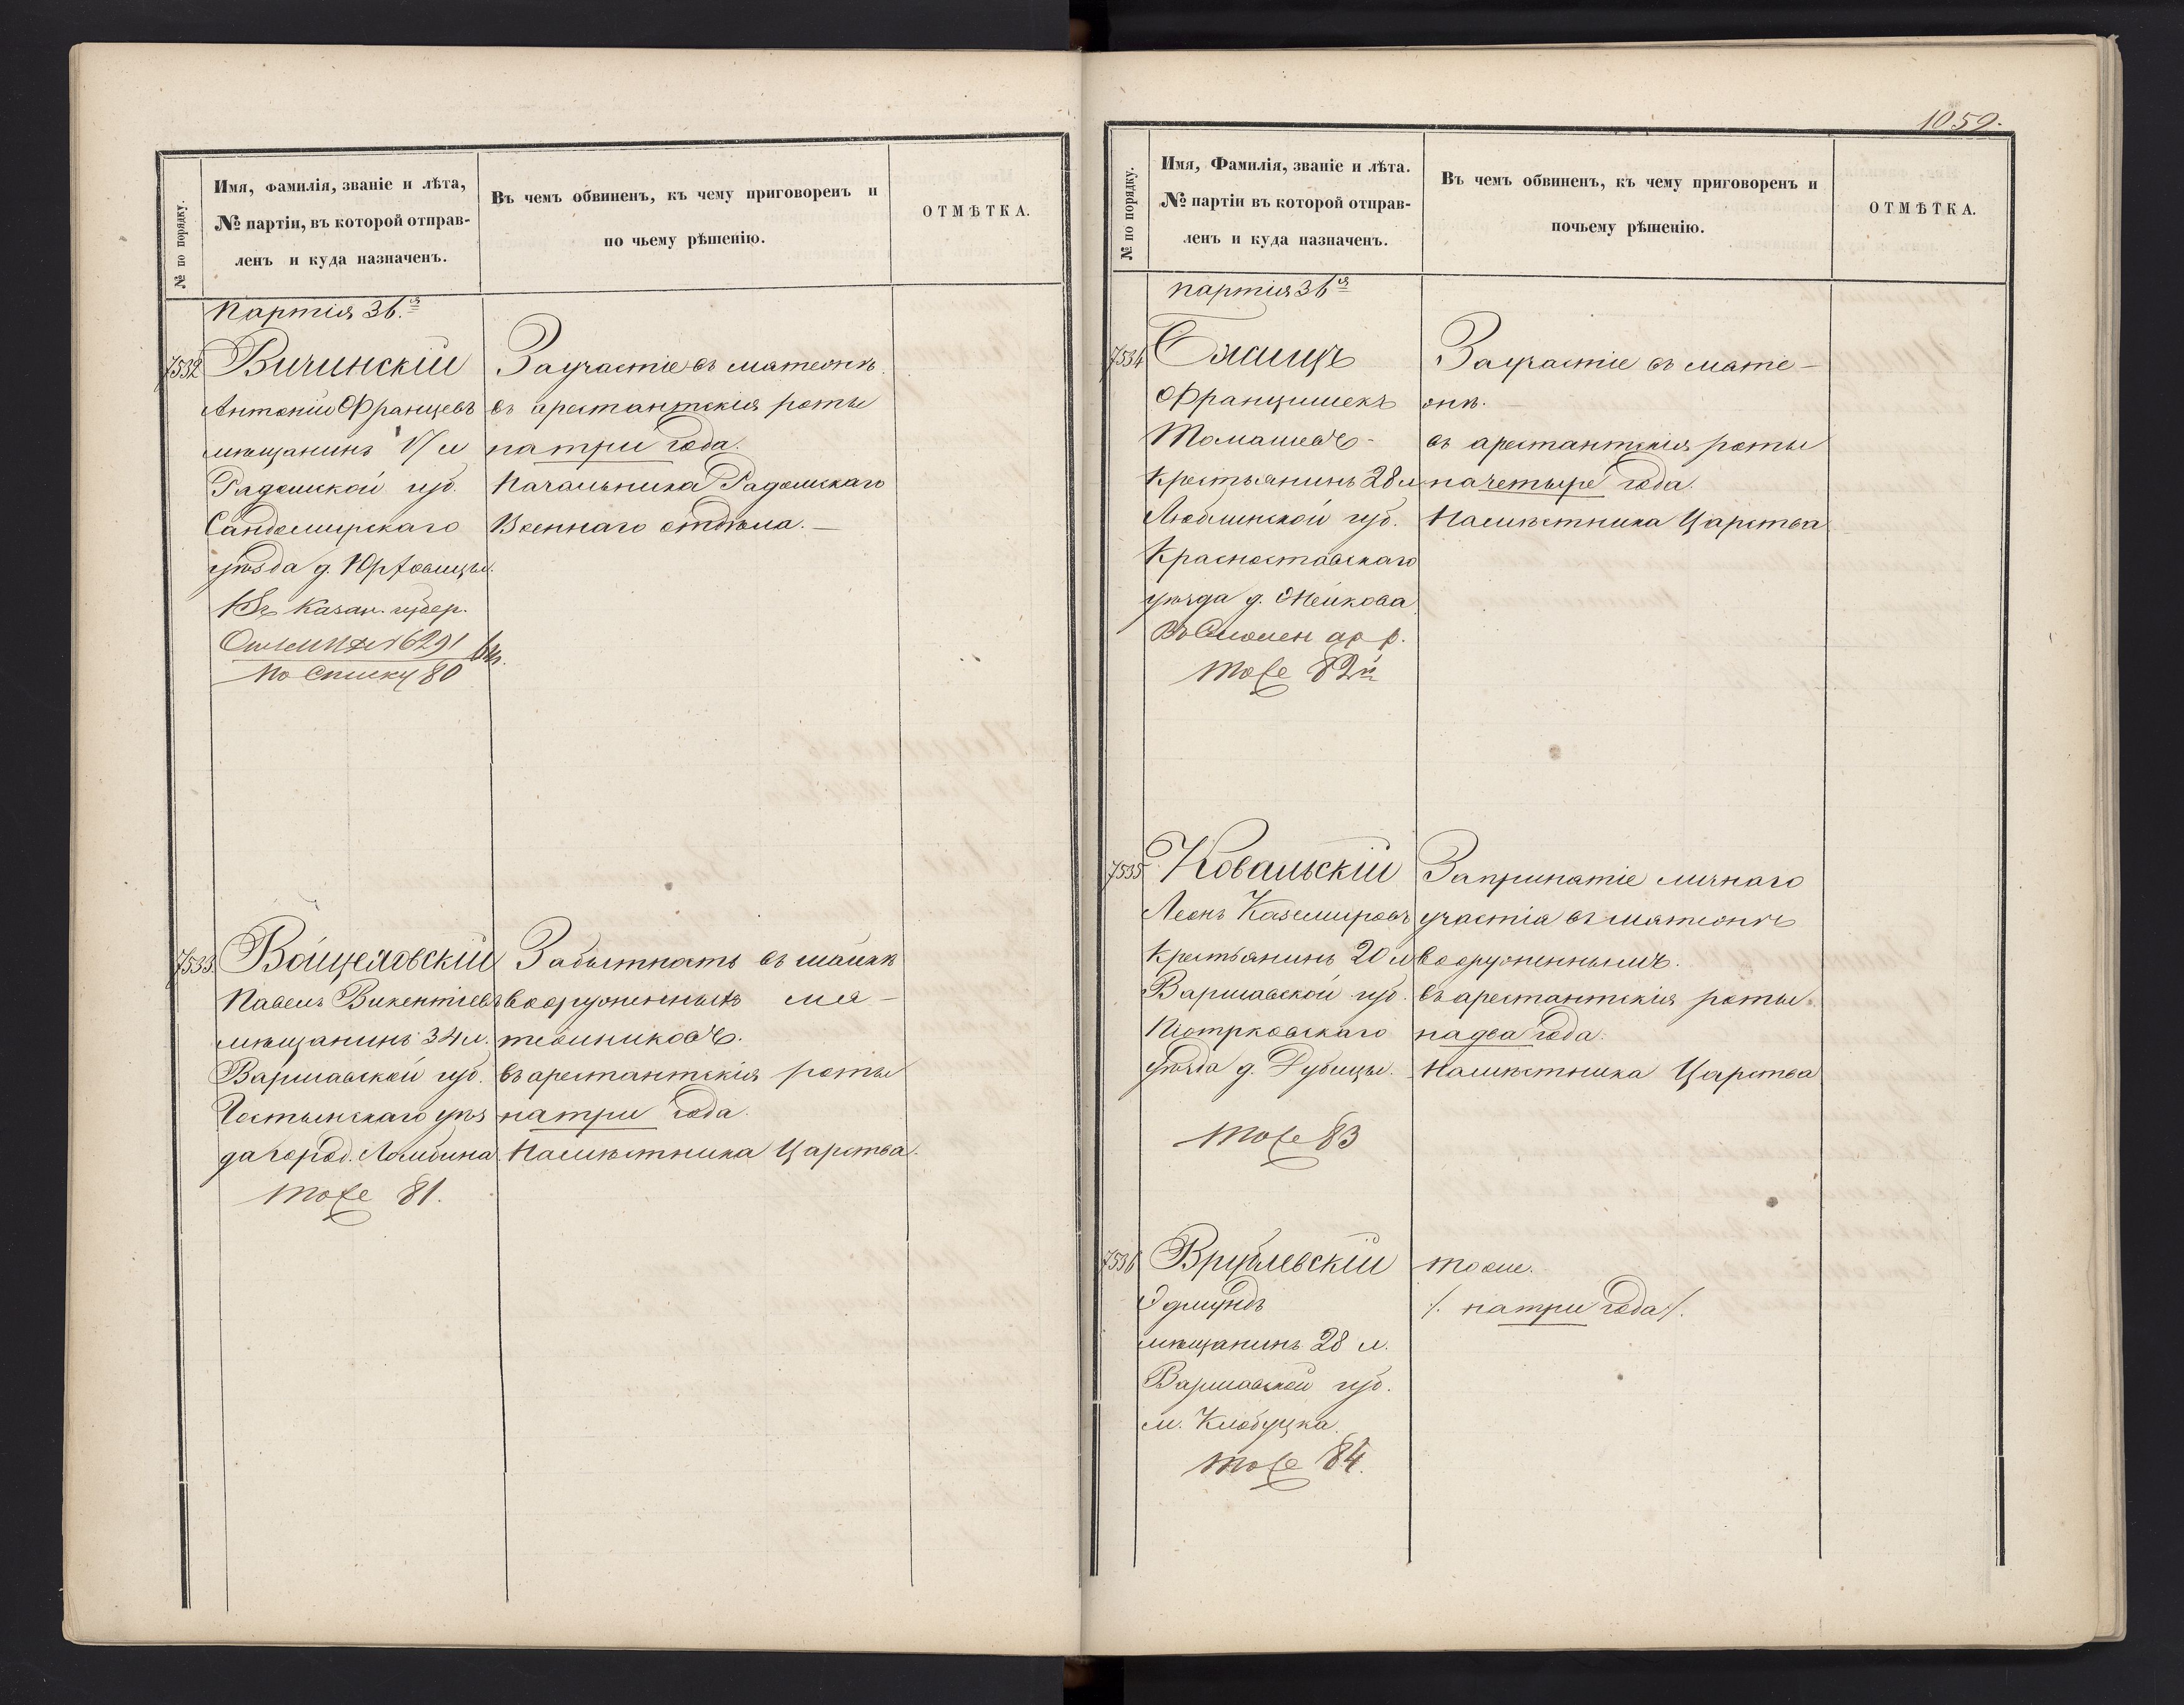 № по порядку.
Имя, фамилія, званіе и лѣта,
№ партіи, въ которой отправ-
ленъ и куда назначенъ.
Въ чемъ обвиненъ, къ чему приговоренъ и
по чьему рѣшенію.
ОТМѢТКА.
Партія 36.я
7532
Вичинскій
Антоній Францевъ
мѣщанинъ 17 л
Радомской губ.
Сандомирскаго
уѣзда д.
Въ Казан. губер.
6291
По списку 80
За участіе въ мятежѣ
въ арестантскія роты
на три года.
Начальника Радомскаго
Военнаго отдѣла. —
7533
Войцеховскій
Павелъ Викентіевъ
мѣщанинъ 34 л.
Варшавской губ.
Гостынскаго уѣз
да город.
тоже 81.
За бытность въ шайкѣ
вооруженныхъ мя-
тежниковъ.
въ арестантскія роты
на три года.
Намѣстника Царства.
1059.
№ по порядку.
Имя, Фамилія, званіе и лѣта.
№ партіи въ которой отправ-
ленъ и куда назначенъ.
Въ чемъ обвиненъ, къ чему приговоренъ и
почьему рѣшенію.
ОТМѢТКА.
партія 36я
7534
Францишекъ
Томашевъ -
Крестьянинъ 28 л
Люблинской губ.
Красноставскаго
уѣзда д.
Въ Смолен ар р.
тоже 82й
За участіе въ мяте-
жѣ. —
въ арестантскія роты
на четыре года.
Намѣстника Царства
7535
Ковальскій
Леонъ Каземировъ
Крестьянинъ 20 л
Варшавской губ.
Піотрковскаго
уѣзда д. Дубицы.
тоже 83
За принятіе личнаго
участія въ мятежѣ
вооруженнымъ.
въ арестантскія роты
на два года.
Намѣстника Царства
7536
Врублевскій
Эдмундъ
мѣщанинъ 28 л.
Варшавской губ.
м. Клобуцка.
тоже 84.
тоже.
/. на три года /.